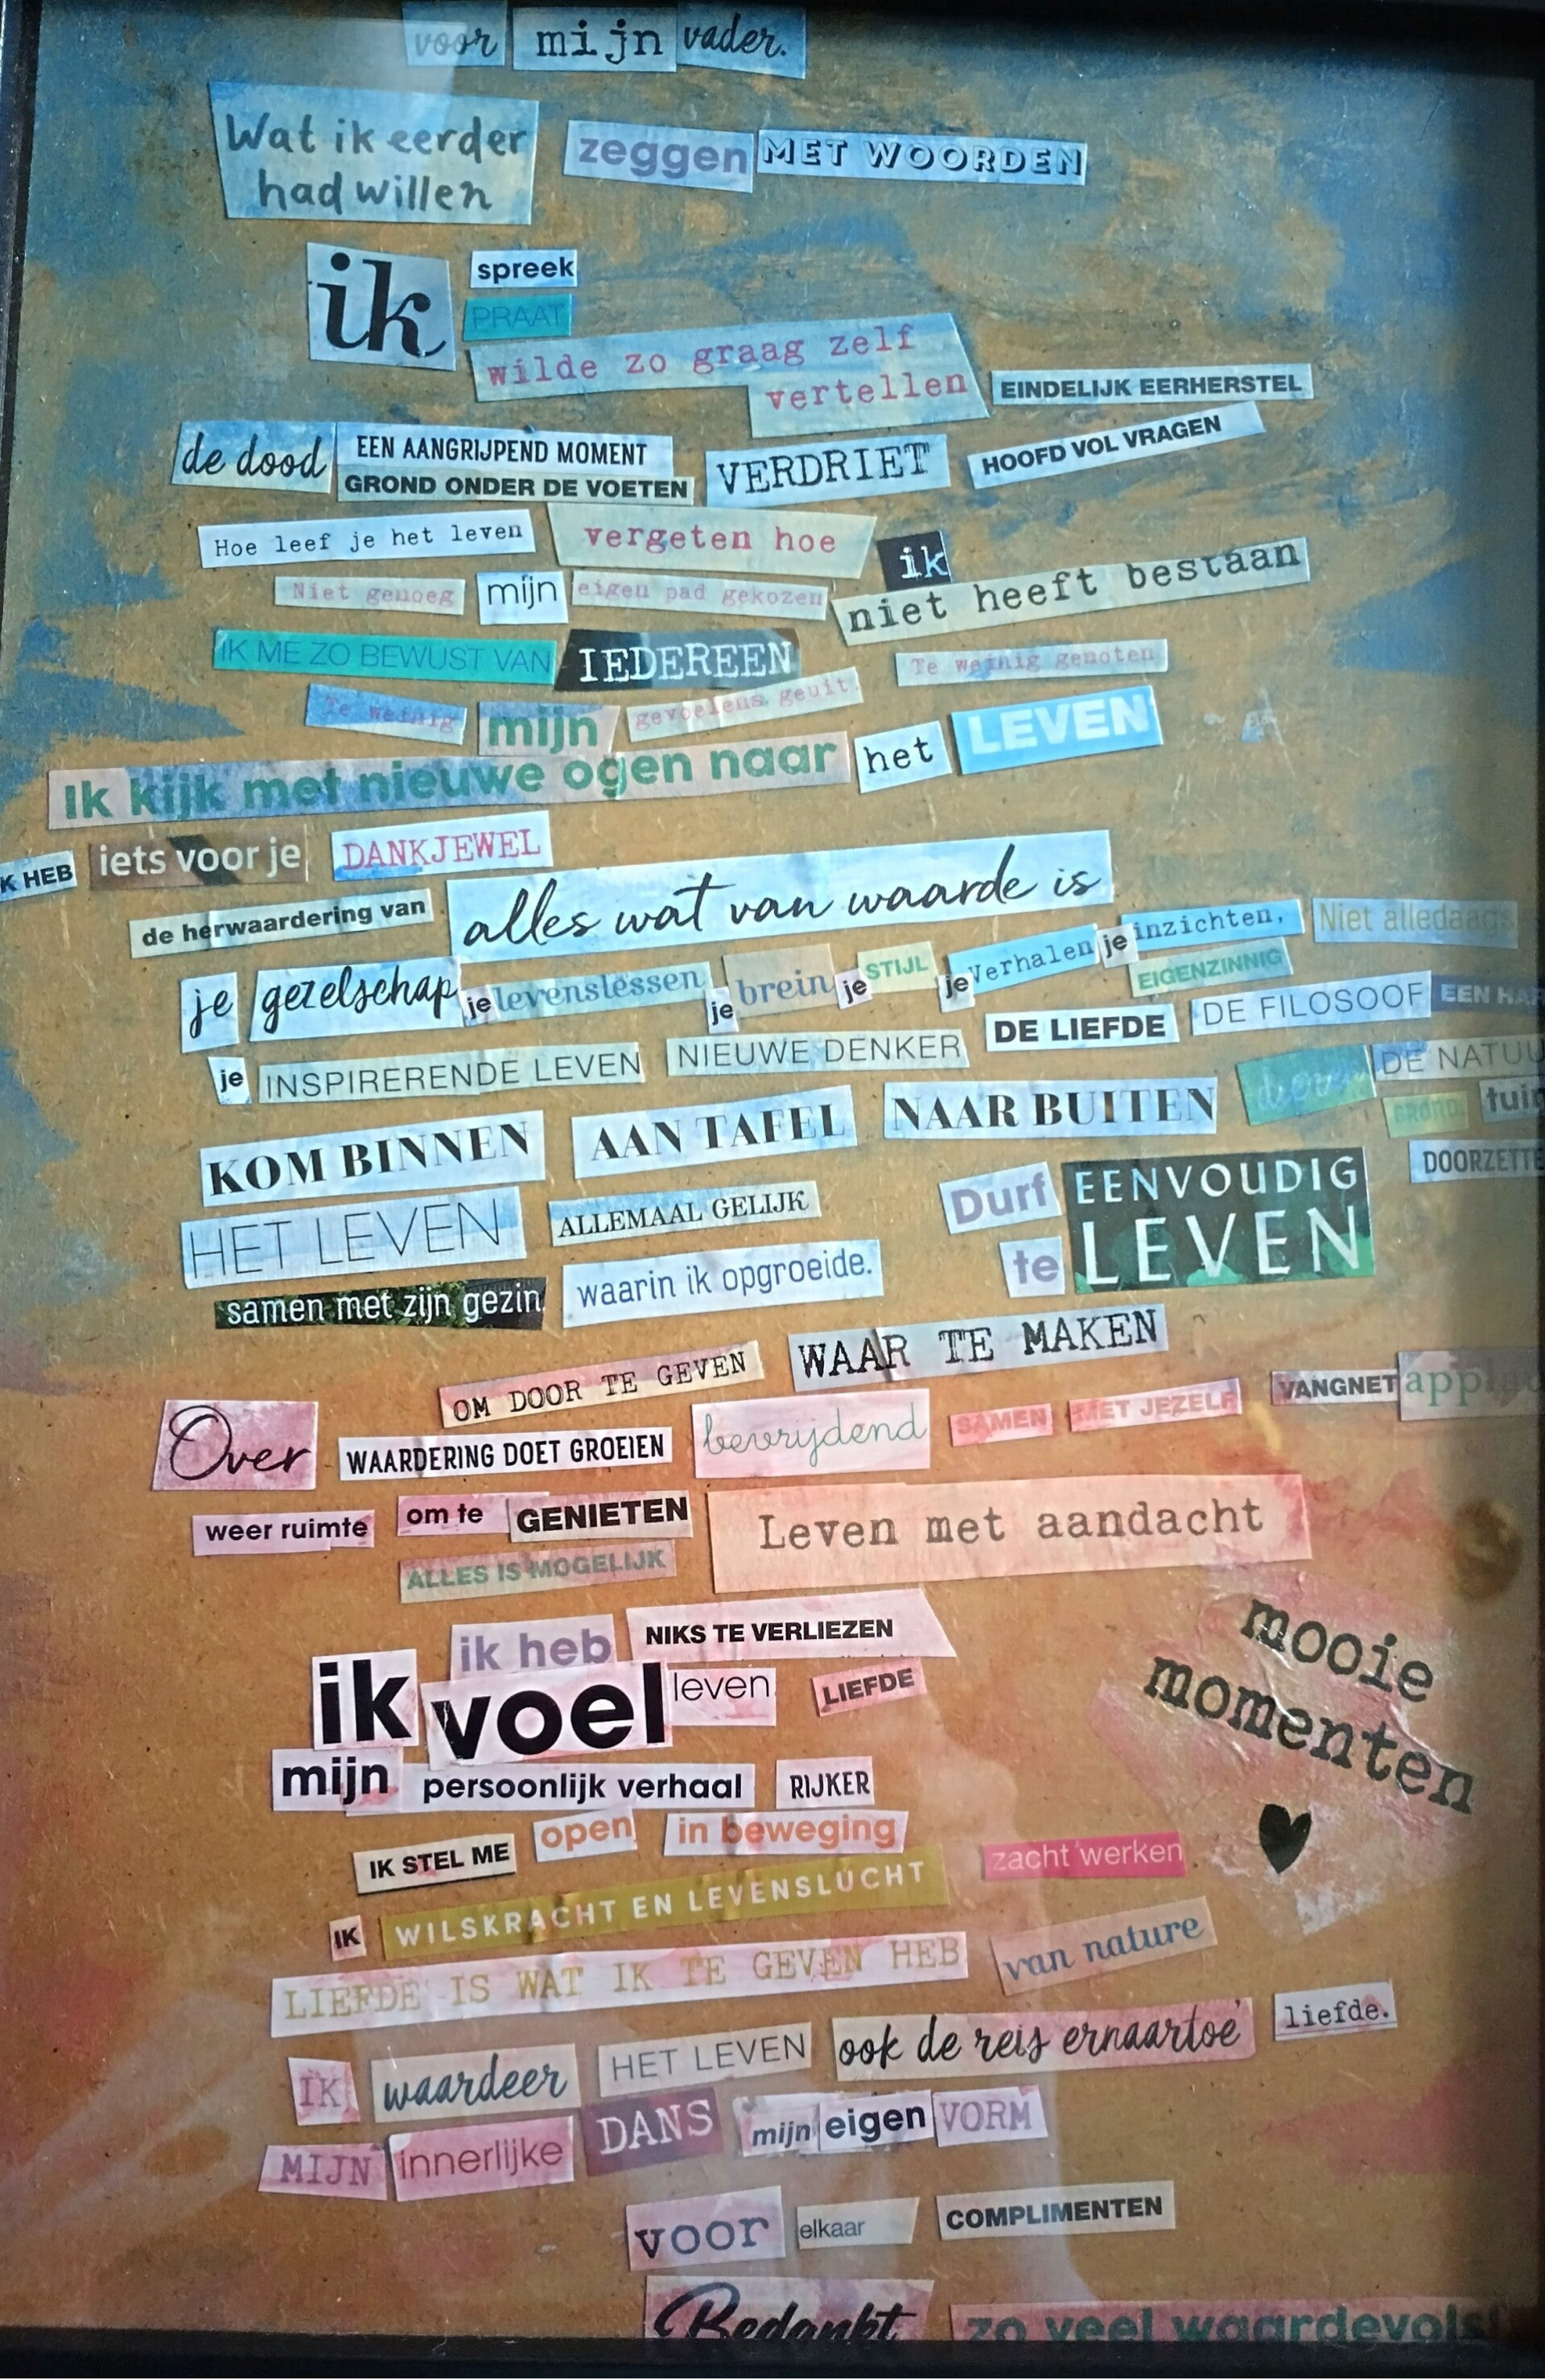 voor mijn vader.
Wat ik eerder
had willen zeggen MET WOORDEN
ik spreek
PRAAT
wilde zo graag zelf
vertellen EINDELIJK EERHERSTEL
de dood EEN AANGRIJPEND MOMENT
GROND ONDER DE VOETEN VERDRIET HOOFD VOL VRAGEN
Hoe leef je het leven vergeten hoe ik
Niet genoeg mijn eigen pad gekozen niet heeft bestaan
IK ME ZO BEWUST VAN IEDEREEN Te weinig genoten
Te weinig mijn gevoelens geuit.
Ik kijk met nieuwe ogen naar het LEVEN
K HEB iets voor je DANKJEWEL
de herwaardering van alles wat van waarde is
je gezelschap je levenslessen je brein je STIJL je Verhalen je inzichten, Niet alledaags
EIGENZINNIG
je INSPIRERENDE LEVEN NIEUWE DENKER DE LIEFDE DE FILOSOOF EEN HAR
DE NATUU
KOM BINNEN AAN TAFEL NAAR BUITEN GROND tuin
HET LEVEN ALLEMAAL GELIJK Durf EENVOUDIG DOORZETTE
samen met zijn gezin. waarin ik opgroeide. te LEVEN
OM DOOR TE GEVEN WAAR TE MAKEN
Over WAARDERING DOET GROEIEN bevrijdend SAMEN MET JEZELF VANGNET appla
weer ruimte om te GENIETEN Leven met aandacht
ALLES IS MOGELIJK
ik heb NIKS TE VERLIEZEN
ik voel leven LIEFDE
mooie
momenten
mijn persoonlijk verhaal RIJKER
IK STEL ME open in beweging
zacht werken
IK WILSKRACHT EN LEVENSLUCHT
LIEFDE IS WAT IK TE GEVEN HEB van nature
IK waardeer HET LEVEN ook de reis ernaartoe liefde.
MIJN innerlijke DANS mijn eigen VORM
voor elkaar COMPLIMENTEN
Bedankt zo veel waardevols!